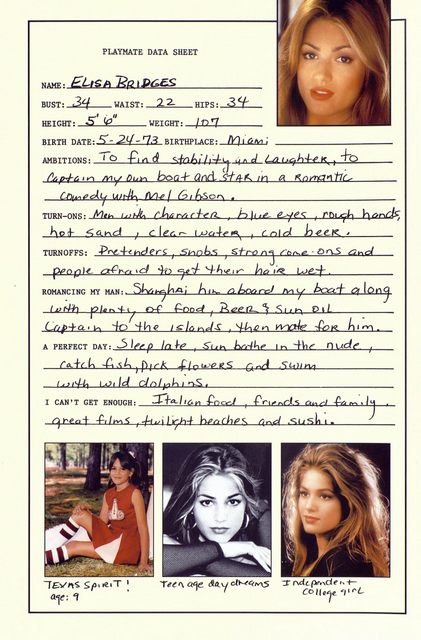 PLAYMATE DATA SHEET
NAME: ELISA BRIDGES
BUST: 34 WAIST: 22 HIPS: 34
HEIGHT: 5'6" WEIGHT: 107
BIRTH DATE: 5-24-73 BIRTHPLACE: Miami
AMBITIONS: To find stability and Laughter, to
Captain my own boat and STAR in a Romantic
comedy with Mel Gibson.
TURN-ONS: Men with character, blue eyes, rough hands,
hot sand, clear water, cold beer.
TURNOFFS: Pretenders, snobs, strong come-ons and
people afraid to get their hair wet.
ROMANCING MY MAN: Shanghai him aboard my boat along
with plenty of food, Beer & Sun Oil
Captain to the islands, then mate for him.
A PERFECT DAY: Sleep late, sun bathe in the nude,
catch fish, pick flowers and swim
with wild dolphins.
I CAN'T GET ENOUGH: Italian food, friends and family.
great films, twilight beaches and sushi.
TEXAS SPIRIT!
age: 9
Teenage daydreams
Independent
College girl